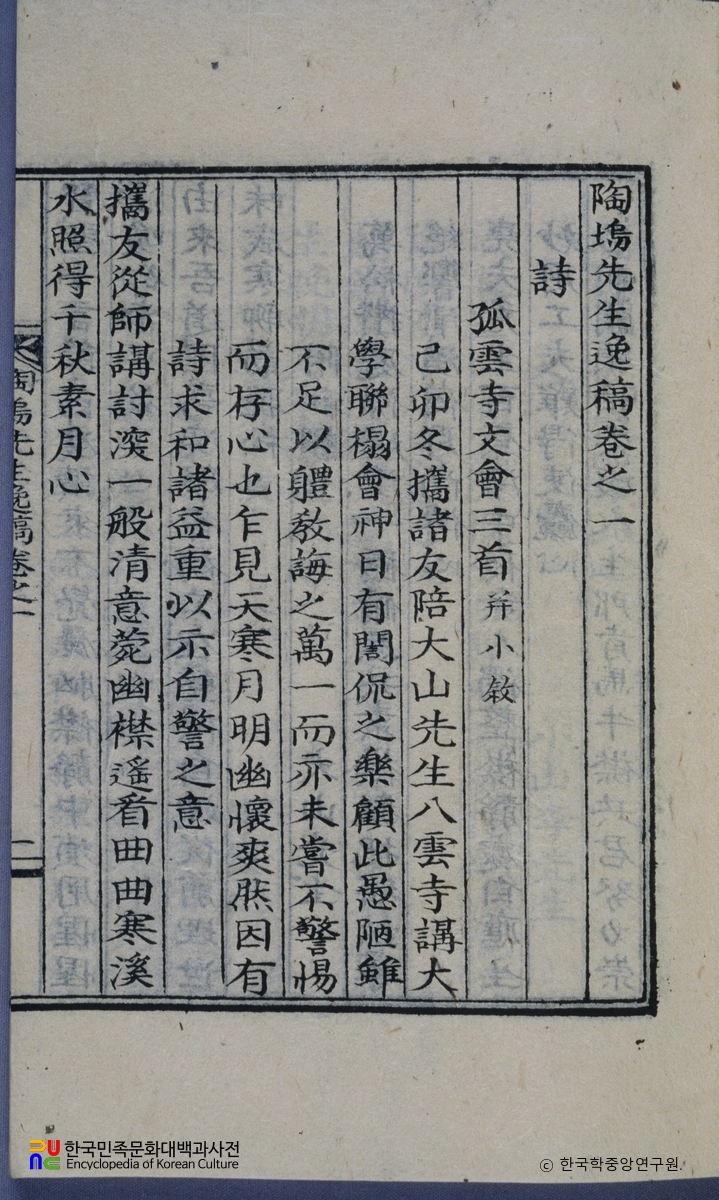 陶塢先生逸稿卷之一
詩
孤雲寺文會三首 并小敘
己卯冬攜諸友陪大山先生八雲寺講大
學聯榻會神日有誾侃之樂顧此愚陋雖
不足以軆教誨之萬一而亦未嘗不警惕
而存心也乍見天寒月明幽懷爽然因有
詩求和諸益重以示自警之意
攜友從師講討深一般清意菀幽襟遙看曲曲寒溪
水照得千秋素月心
陶塢先生逸稿卷之一
한국민족문화대백과사전
Encyclopedia of Korean Culture
© 한국학중앙연구원